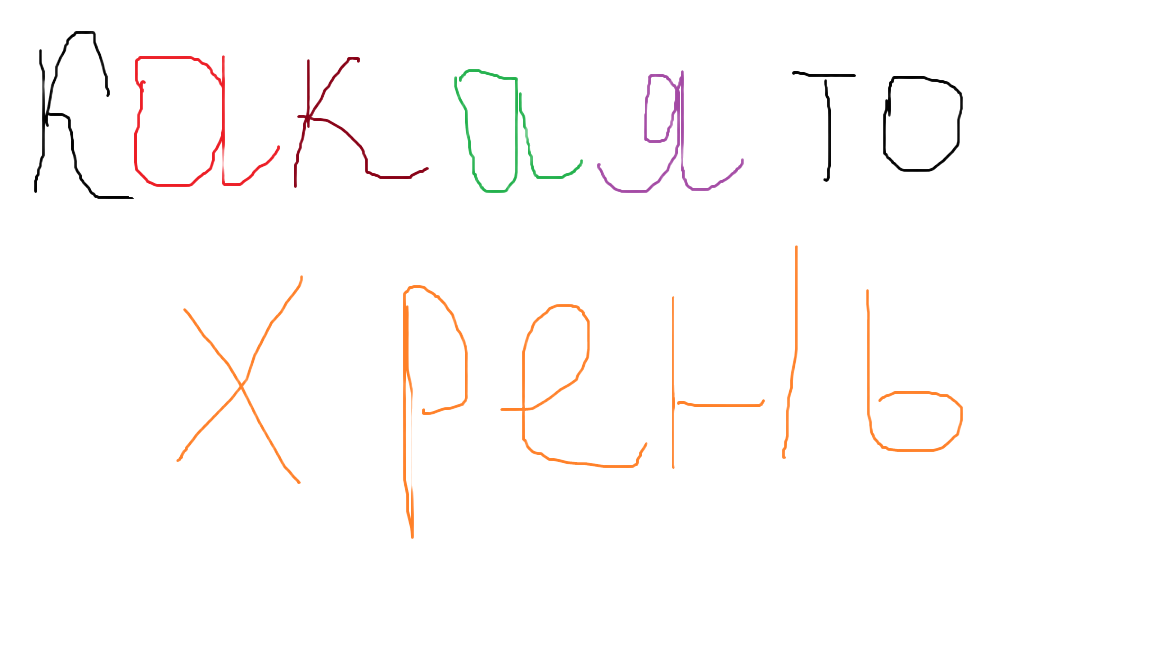 Какая то
хрень